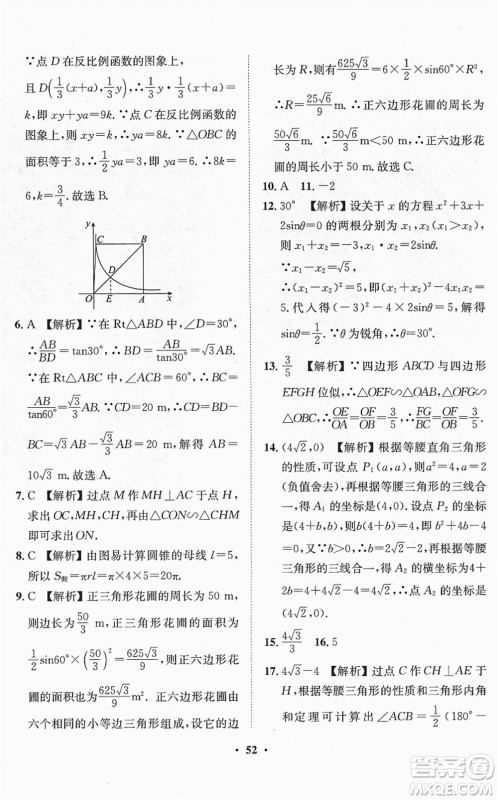 ∵点 D 在反比例函数的图象上，
且 D(1/3(x+a), 1/3y)，∴1/3y·1/3(x+a)=
k，即 xy+ya=9k. ∵点 C 在反比例函数的
图象上，则 xy=k，∴ya=8k. ∵△OBC 的
面积等于 3，∴1/2ya=3，即 ya=6. ∴8k=
6，k=3/4. 故选 B.
y
C
B
D
O
E
A
x
6. A 【解析】∵在 Rt△ABD 中，∠D=30°，
∴AB/BD=tan30°，∴BD=AB/tan30°=√3AB.
∵在 Rt△ABC 中，∠ACB=60°，∴BC=
AB/tan60°=√3/3AB. ∵CD=20 m，∴CD=BD-
BC=√3AB-√3/3AB=20 m，解得 AB=
10√3 m. 故选 A.
7. C 【解析】过点 M 作 MH⊥AC 于点 H，
求出 OC，MH，CH，再由△CON∽△CHM
即可求解.
8. C 【解析】由图易计算圆锥的母线 l=5，
所以 S侧=πrl=π×4×5=20π.
9. C 【解析】正三角形花圃的周长为 50 m，
则边长为 50/3 m，正三角形花圃的面积为
1/2sin60°×(50/3)²=625√3/9 m²，正六边形花
圃的面积为 625√3/9 m². 正六边形花圃可由
六个相同的小等边三角形组成，设它的边
长为 R，则有 625√3/9=6×1/2×sin60°×R²，
∴R=25√6/9 m. ∴正六边形花圃的周长为
50√6/3 m. ∵50√6/3 m<50 m，∴正六边形花
圃的周长小于 50 m. 故选 C.
10. A 11. -2
12. 30° 【解析】设关于 x 的方程 x²+3x+
2sinθ=0 的两根分别为 x₁，x₂(x₁>x₂)，则
x₁+x₂=-3，x₁·x₂=2sinθ.
∵x₁-x₂=√5，∴(x₁+x₂)²-4x₁x₂=
5. 代入得 9-8sinθ=5，
解得 sinθ=1/2. ∵θ 为锐角，∴θ=30°.
13. 3/5 【解析】∵四边形 ABCD 与四边形
EFGH 位似，∴△OEF∽△OAB，△OFG∽
△OBC，∴OE/OA=OF/OB=3/5，∴FG/BC=OF/OB=3/5.
14. (4√2,0) 【解析】根据等腰直角三角形的
性质，可设点 P₁(a,a)，则 a²=4，a=2
(负值舍去)，再根据等腰三角形的三线合
一，得 A₁ 的坐标是(4,0)，设点 P₂ 的坐
标是(4+b,b)，则 b(4+b)=4，即 b²+
4b-4=0. 又∵b>0，∴b=2√2-2，再根据
等腰三角形的三线合一，∴A₂ 的横坐标
是 4+2b=4+4√2-4=4√2，∴点 A₂ 的
坐标是(4√2,0).
15. 4√3/3 16. 5
17. 4√3-4 【解析】过点 C 作 CH⊥AE 于
H，如图所示. ∵AB=BC=8，由三角形内
角和定理可求 ∠ACB=1/2(180°-
• 52 •